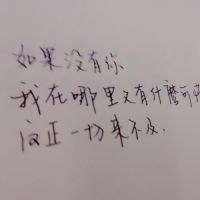 如果没有你
我在哪里又有什麽可
反正一切来不及